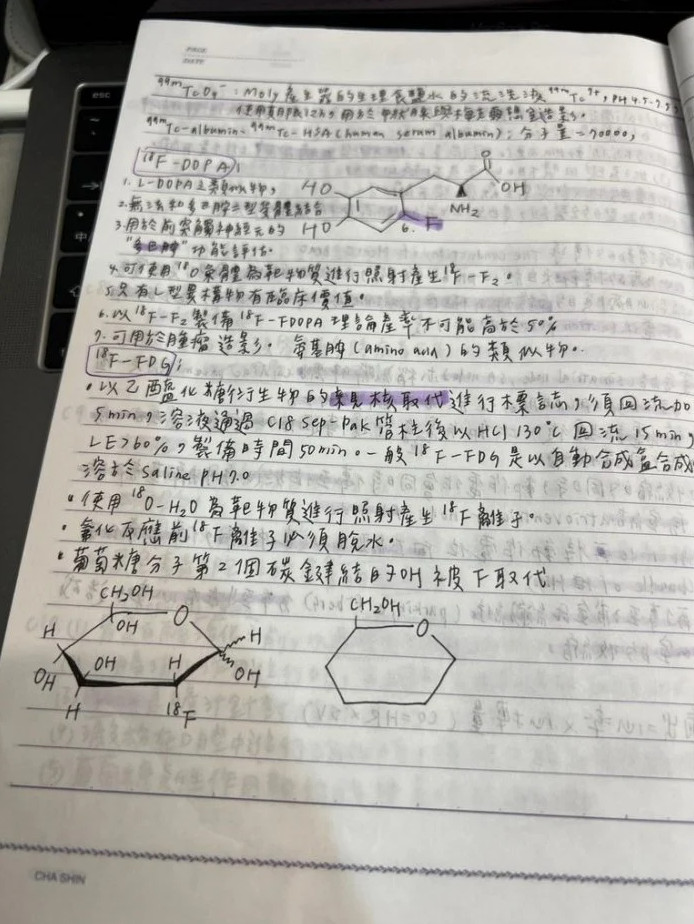 PAGE
DATE
esc
⁹⁹ᵐTcO₄⁻：Moly產生器的生理食鹽水的流洗液 ⁹⁹ᵐTc⁷⁺，pH 4.5-7.5
⁹⁹ᵐTc-albumin、⁹⁹ᵐTc-HSA (human serum albumin)：分子量=70000，
¹⁸F-DOPA：
1. L-DOPA之類似物，
2. 無法和多巴胺二型受體結合
3. 用於前突觸神經元的
"多巴胺"功能評估。
HO
HO
O
OH
NH₂
F
6.
4. 可使用¹⁸O氣體為靶物質進行照射產生¹⁸F-F₂。
5. 只有L型異構物有臨床價值。
6. 以¹⁸F-F₂製備¹⁸F-FDOPA理論產率不可能高於50%
7. 可用於腫瘤造影。氨基酸(amino acid)的類似物。
¹⁸F-FDG：
• 以乙醯化糖衍生物的親核取代進行標誌，須回流加
5min，溶液通過C18 Sep-Pak管柱後以HCl 130°C回流15min，
LE>60%，製備時間50min。一般¹⁸F-FDG是以自動合成盒合成
溶於saline pH 7.0
• 使用¹⁸O-H₂O為靶物質進行照射產生¹⁸F離子。
• 氟化反應前¹⁸F離子必須脫水。
• 葡萄糖分子第2個碳鍵結的OH被F取代
CH₂OH
O
H
OH
H
OH
OH
H
OH
H
¹⁸F
CH₂OH
O
CHA SHIN